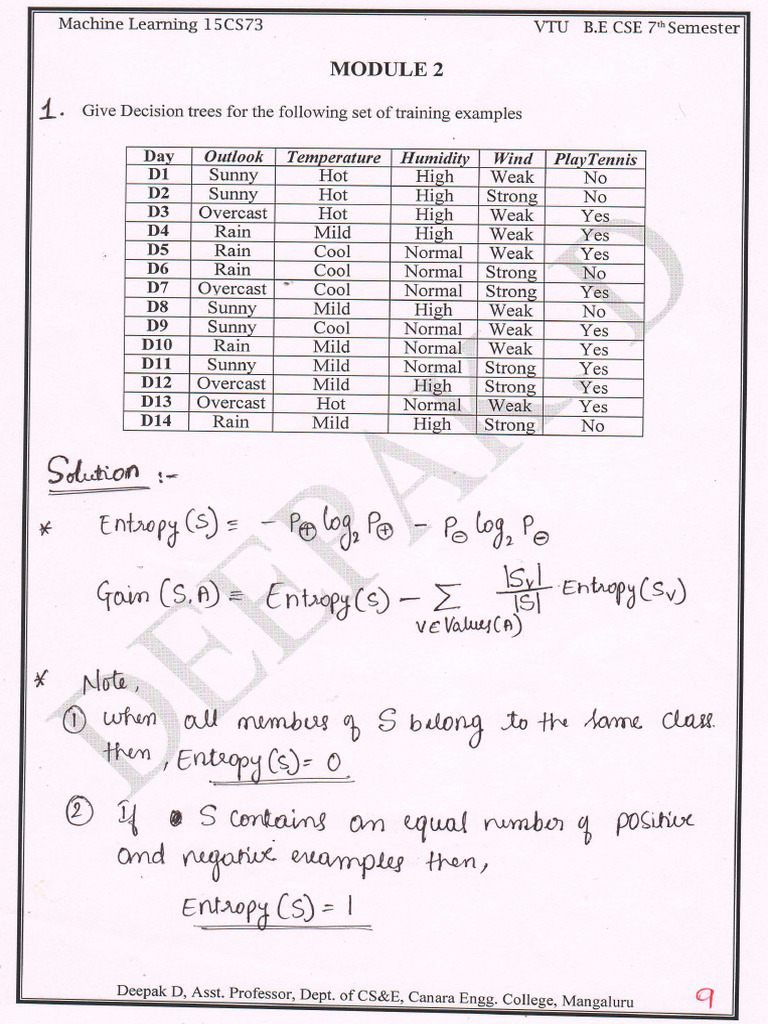 Machine Learning 15CS73 VTU B.E CSE 7th Semester
MODULE 2
1. Give Decision trees for the following set of training examples
Day Outlook Temperature Humidity Wind PlayTennis
D1 Sunny Hot High Weak No
D2 Sunny Hot High Strong No
D3 Overcast Hot High Weak Yes
D4 Rain Mild High Weak Yes
D5 Rain Cool Normal Weak Yes
D6 Rain Cool Normal Strong No
D7 Overcast Cool Normal Strong Yes
D8 Sunny Mild High Weak No
D9 Sunny Cool Normal Weak Yes
D10 Rain Mild Normal Weak Yes
D11 Sunny Mild Normal Strong Yes
D12 Overcast Mild High Strong Yes
D13 Overcast Hot Normal Weak Yes
D14 Rain Mild High Strong No
DEEPAK. D
Solution :-
* Entropy(S) = - P⊕ log₂ P⊕ - P⊖ log₂ P⊖
Gain (S,A) = Entropy(S) - Σ v∈Values(A) |Sv|/|S| Entropy(Sv)
* Note,
① when all members of S belong to the same class
then, Entropy(S) = 0
② If S contains an equal number of positive
and negative examples then,
Entropy(S) = 1
Deepak D, Asst. Professor, Dept. of CS&E, Canara Engg. College, Mangaluru 9